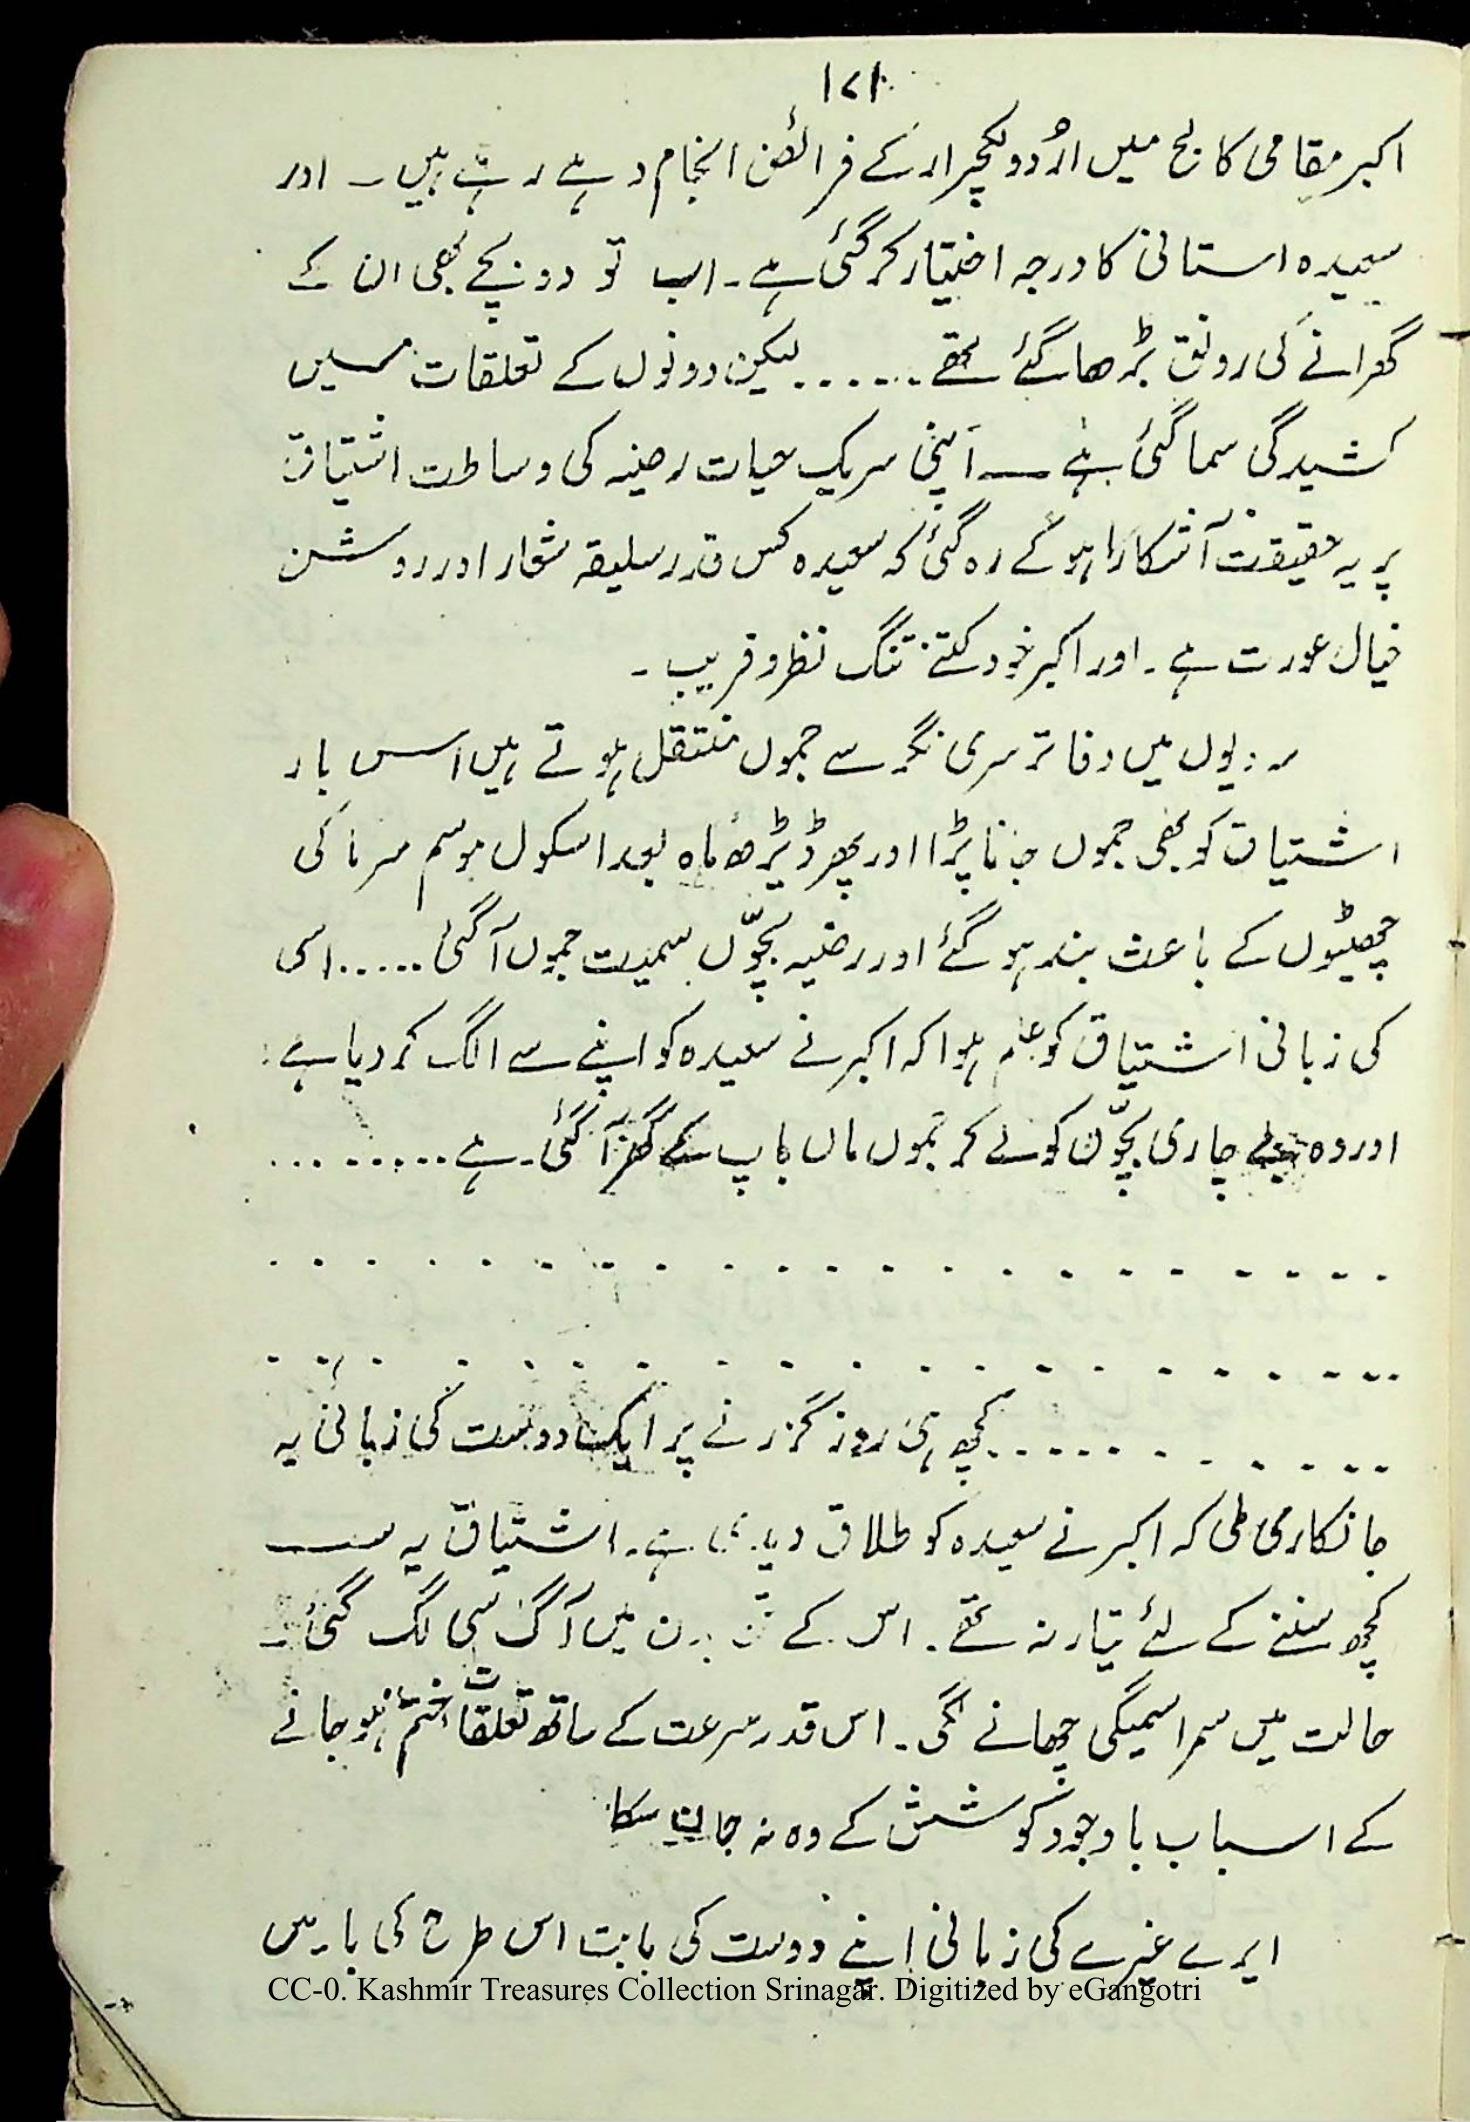 ۱۷۱
اکبر مقامی کالج میں اردو لکچرار کے فرائض انجام دے رہے ہیں۔ اور
سعیدہ استانی کا درجہ اختیار کر گئی ہے۔ اب تو دو بچے بھی ان کے
گھرانے کی رونق بڑھا گئے تھے ...... لیکن دونوں کے تعلقات میں
کشیدگی سما گئی ہے ــ اپنی شریک حیات رضیہ کی وساطت اشتیاق
پر یہ حقیقت آشکارا ہو کے رہ گئی کہ سعیدہ کس قدر سلیقہ شعار اور روشن
خیال عورت ہے۔ اور اکبر خود کتنے تنگ نظر و فریب۔
سردیوں میں دفاتر سری نگر سے جموں منتقل ہوتے ہیں اس بار
اشتیاق کو بھی جموں جانا پڑا اور پھر ڈیڑھ ماہ بعد اسکول موسم سرما کی
چھٹیوں کے باعث بند ہو گئے اور رضیہ بچّوں سمیت جموں آ گئی ..... اسی
کی زبانی اشتیاق کو علم ہوا کہ اکبر نے سعیدہ کو اپنے سے الگ کر دیا ہے۔
اور وہ بے چاری بچّوں کو لے کر جموں ماں باپ کے گھر آ گئی ہے .........
. . . . . . . . . . . . . . . . . . . .
. . . . . . . . . . . . . . . . . . . .
............ کچھ ہی روز گزرنے پر ایک دوست کی زبانی یہ
جانکاری ملی کہ اکبر نے سعیدہ کو طلاق دیدی ہے۔ اشتیاق یہ سب
کچھ سننے کے لئے تیار نہ تھے۔ اس کے تن بدن میں آگ سی لگ گئی۔
حالت میں سراسمیگی چھانے لگی۔ اس قدر سرعت کے ساتھ تعلقات ختم ہو جانے
کے اسباب باوجود کوشش کے وہ نہ جان سکا
ایرے غیرے کی زبانی اپنے دوست کی بابت اس طرح کی باتیں
CC-0. Kashmir Treasures Collection Srinagar. Digitized by eGangotri